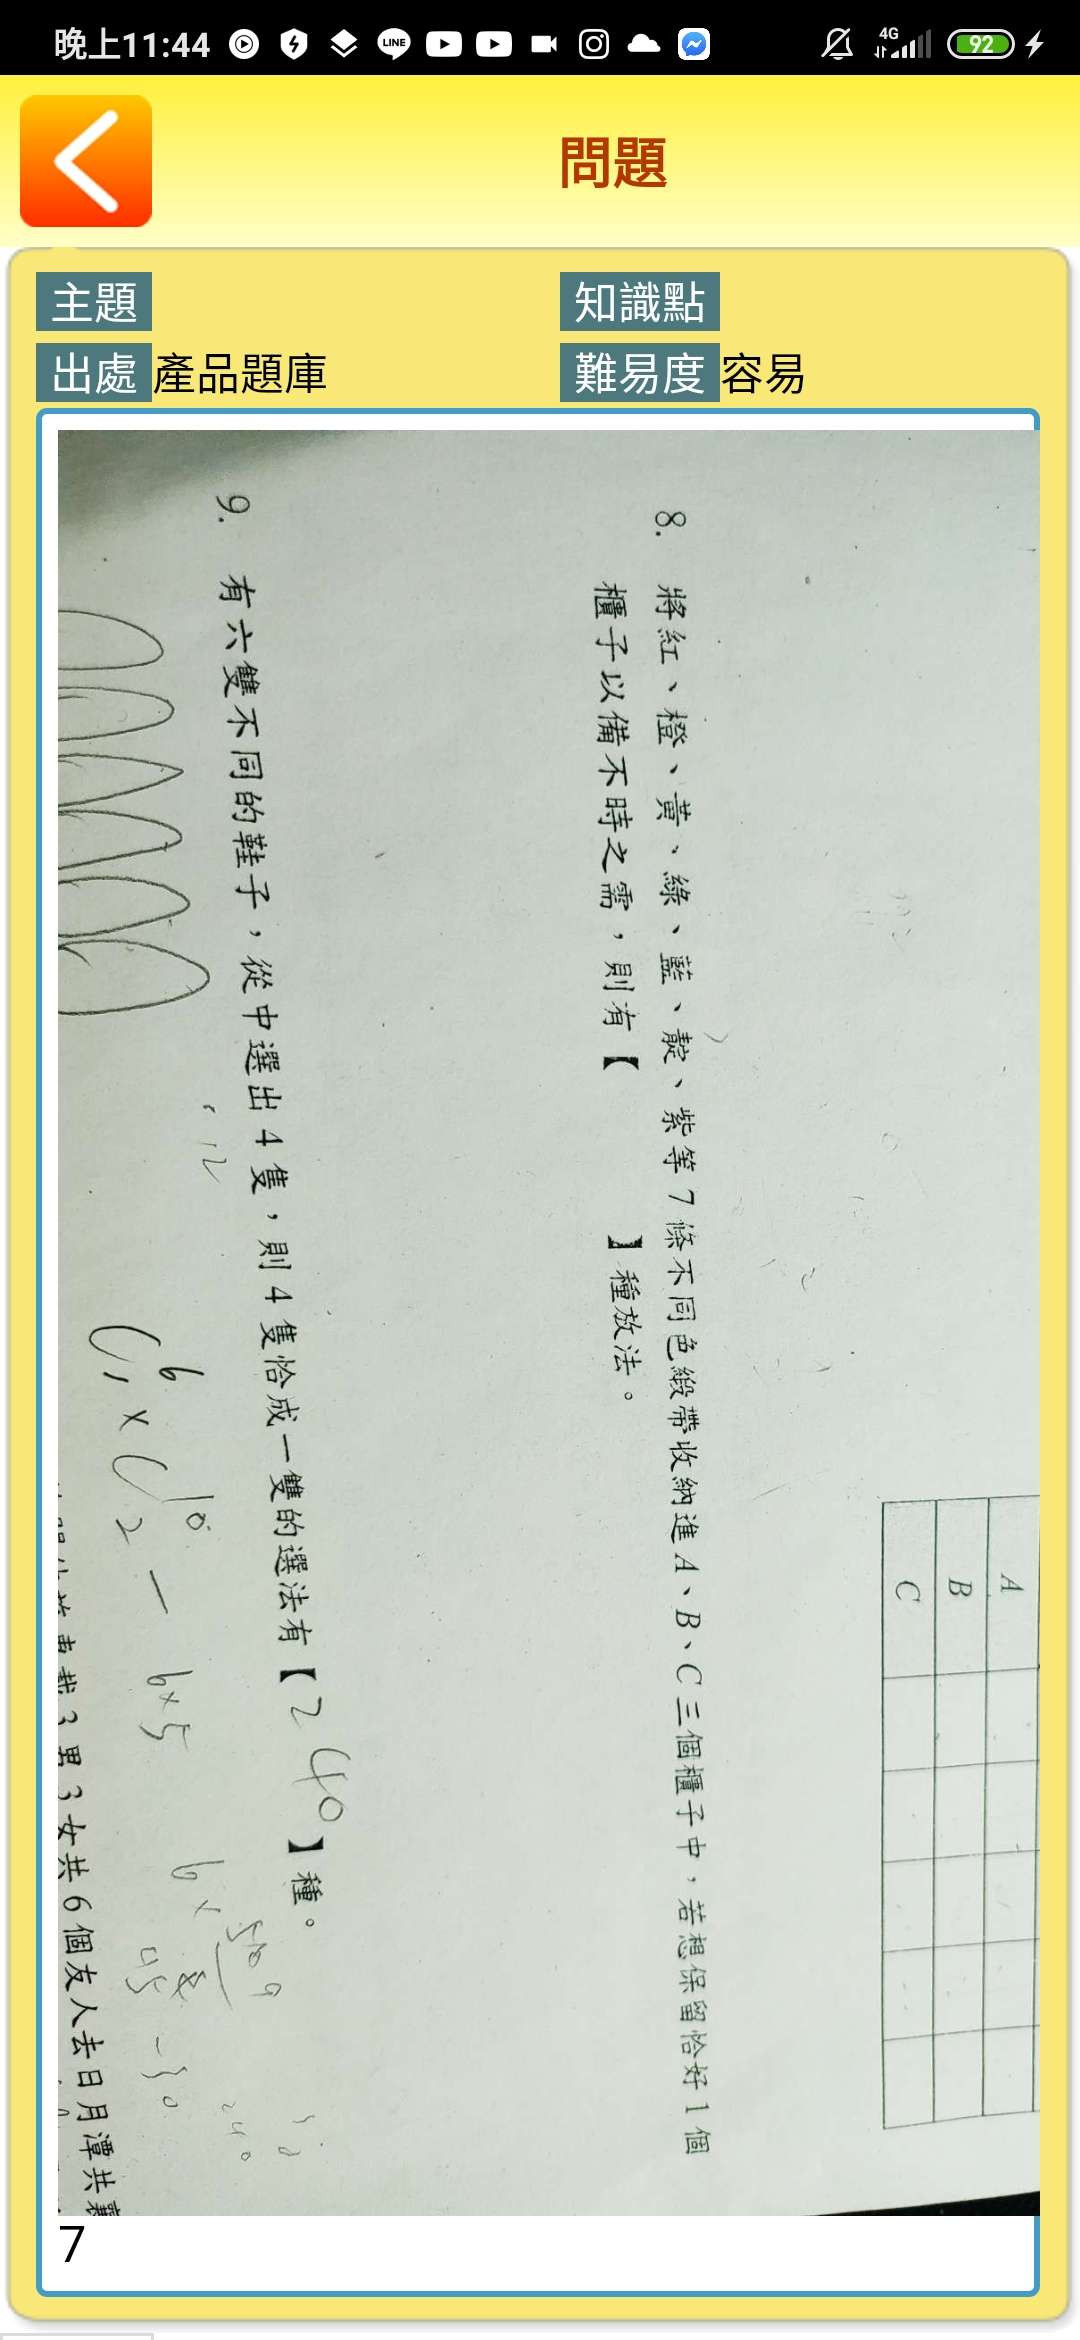 晚上11:44
LINE
4G
92
問題
主題
知識點
出處 產品題庫
難易度 容易
A
B
C
8. 將紅、橙、黃、綠、藍、靛、紫等7條不同色緞帶收納進A、B、C三個櫃子中，若想保留恰好1個
櫃子以備不時之需，則有【 】種放法。
9. 有六雙不同的鞋子，從中選出4隻，則4隻恰成一雙的選法有【240】種。
12
C 6 1 × C 10 2 - 6×5
240
男3女共6個友人去日月潭共
7